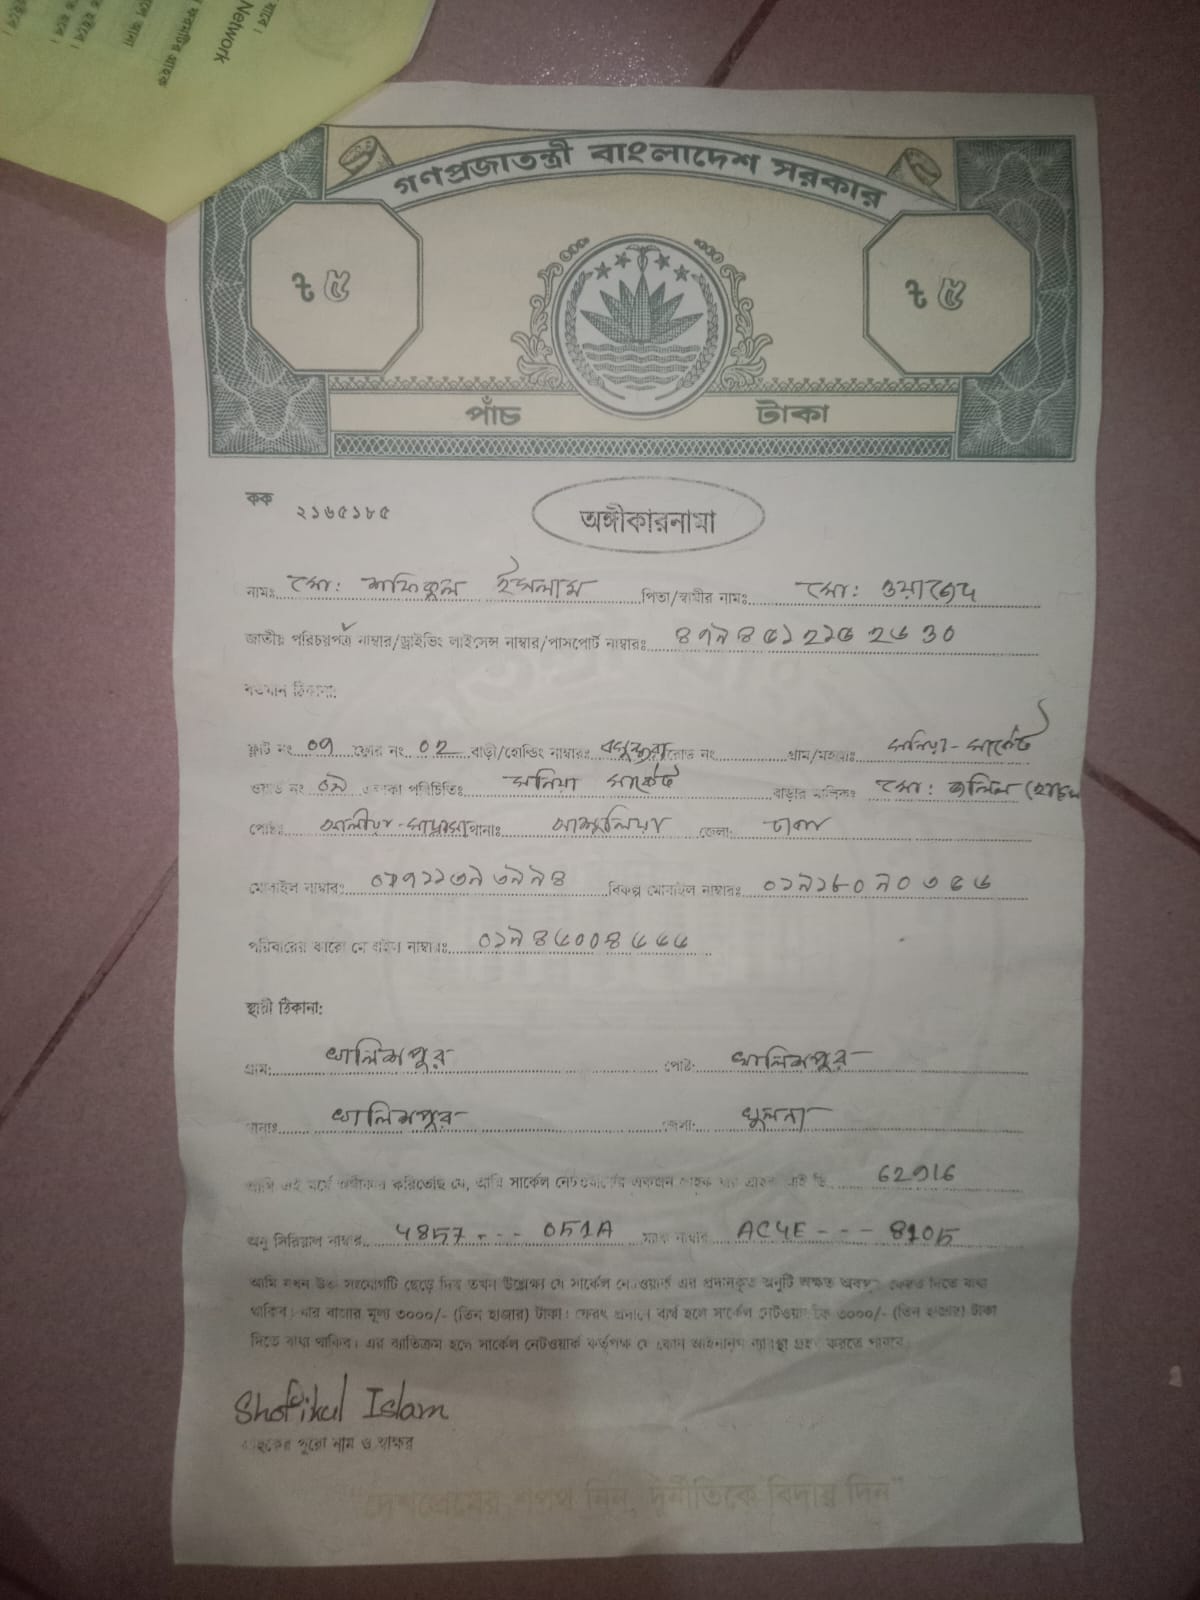 Network
গণপ্রজাতন্ত্রী বাংলাদেশ সরকার
৳ ৫ ৳ ৫
পাঁচ টাকা
কক ২১৬৫১৮৫
অঙ্গীকারনামা
নামঃ মো: শফিকুল ইসলাম পিতা/স্বামীর নামঃ মো: ওয়াজেদ
জাতীয় পরিচয়পত্র নাম্বার/ড্রাইভিং লাইসেন্স নাম্বার/পাসপোর্ট নাম্বারঃ
বর্তমান ঠিকানা:
ফ্লাট নং ০৭ ফ্লোর নং ০২ বাড়ী/হোল্ডিং নাম্বারঃ বসুন্ধরা রোড নং গ্রাম/মহল্লাঃ সনিয়া-মার্কেট
ওয়ার্ড নং ০৯ এলাকা পরিচিতিঃ সনিয়া মার্কেট বাড়ীর মালিকঃ মো: জলিল
পোষ্টঃ থানাঃ আশুলিয়া জেলা: ঢাকা
মোবাইল নাম্বারঃ বিকল্প মোবাইল নাম্বারঃ
পরিবারের কারো মোবাইল নাম্বারঃ
স্থায়ী ঠিকানা:
গ্রাম: খালিশপুর পোষ্ট: খালিশপুর
থানাঃ খালিশপুর জেলা: খুলনা
আমি এই মর্মে অঙ্গীকার করিতেছি যে, আমি সার্কেল নেটওয়ার্কের একজন গ্রাহক যার গ্রাহক আই ডি 62916
অনু সিরিয়াল নাম্বার 4857--- 051A ম্যাক নাম্বার AC4E--- 8105
আমি যখন উক্ত সংযোগটি ছেড়ে দিব তখন উল্লেখ্য যে সার্কেল নেটওয়ার্ক এর প্রদানকৃত অনুটি অক্ষত অবস্থায় ফেরত দিতে বাধ্য
থাকিব। যার বাজার মূল্য ৩০০০/- (তিন হাজার) টাকা। ফেরৎ প্রদানে ব্যর্থ হলে সার্কেল নেটওয়ার্ককে ৩০০০/- (তিন হাজার) টাকা
দিতে বাধ্য থাকিব। এর ব্যতিক্রম হলে সার্কেল নেটওয়ার্ক কর্তৃপক্ষ যে কোন আইনানুগ ব্যবস্থা গ্রহণ করতে পারবে।
Shofikul Islam
গ্রাহকের পুরো নাম ও স্বাক্ষর
"দেশপ্রেমের শপথ নিন, দুর্নীতিকে বিদায় দিন"